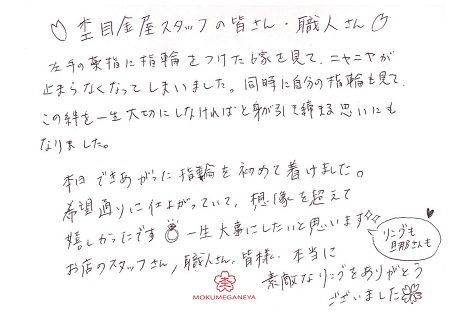 杢目金屋スタッフの皆さん・職人さん
左手の薬指に指輪をつけた嫁を見て、ニヤニヤが
止まらなくなってしまいました。同時に自分の指輪も見て、
この絆を一生大切にしなければと身が引き締まる思いにも
なりました。
本日できあがった指輪を初めて着けました。
希望通りに仕上がっていて、想像を超えて
嬉しかったです 一生大事にしたいと思います
リングも
旦那さんも
お店のスタッフさん、職人さん、皆様、本当に
素敵なリングをありがとう
ございました
MOKUMEGANEYA